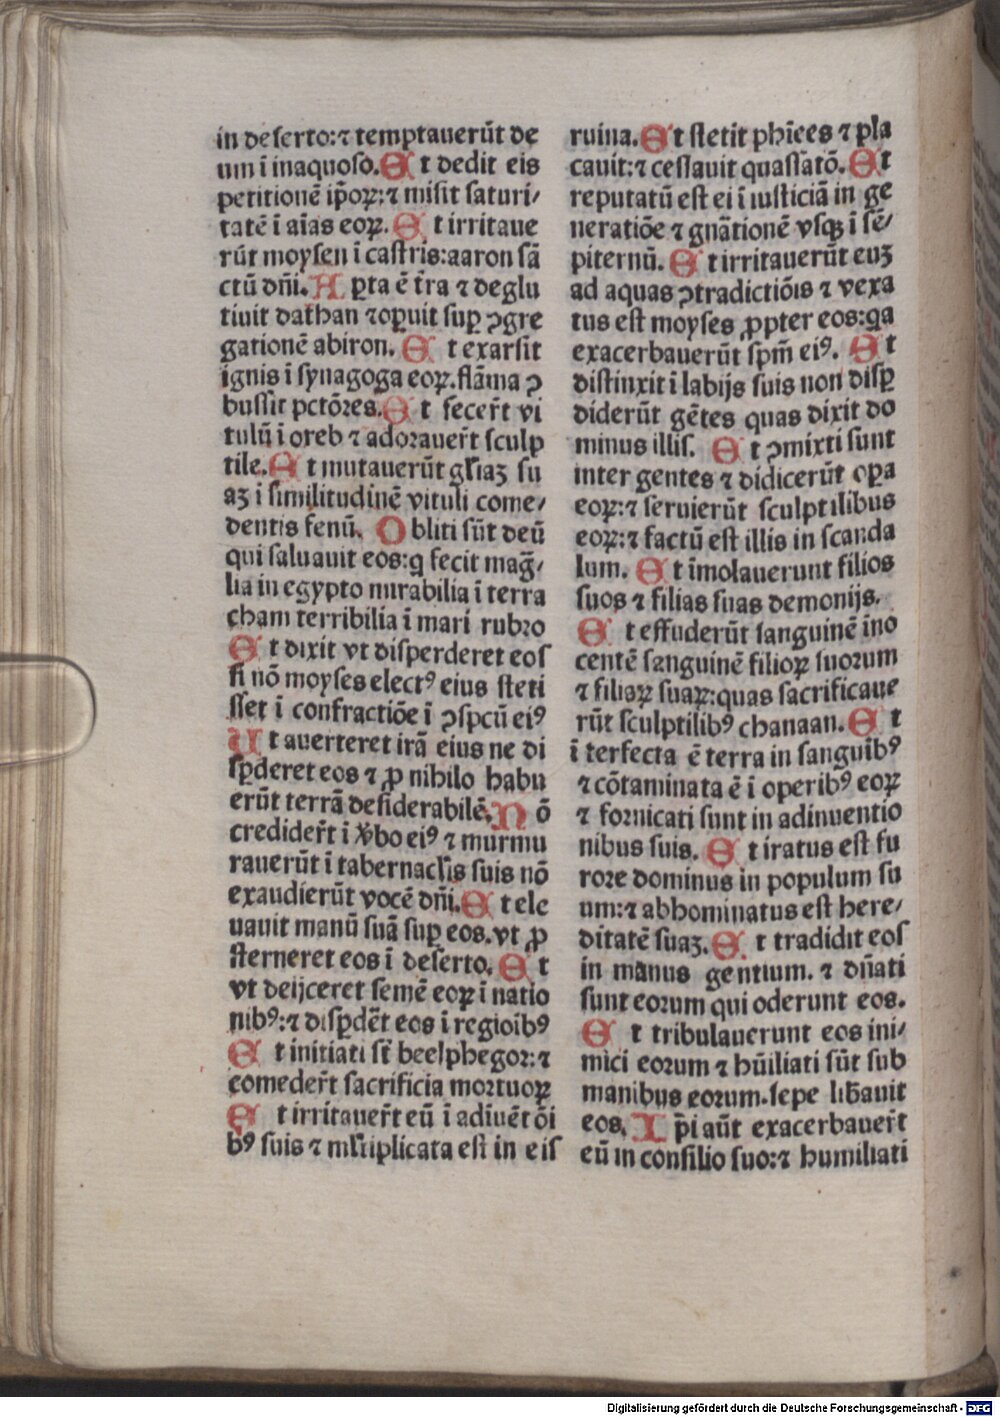 in deserto:⁊ temptauerūt de
um ī inaquoso.Et dedit eis
petitionē ip̄oꝝ:⁊ misit saturi/
tatē ī aīas eoꝝ. Et irritaue
rūt moysen ī castris:aaron sā
ctū dn̄i.Apta ē t̄ra ⁊ deglu
tiuit dathan ⁊oꝑuit suꝑ ↄgre
gationē abiron. Et exarsit
ignis ī synagoga eoꝝ.flāma ↄ
bussit pctōres.Et fecer̄t vi
tulū ī oreb ⁊ adorauer̄t sculp
tile.Et mutauerūt gl̄iaꝫ su
aꝫ ī similitudinē vituli come/
dentis fenū. Obliti sūt deū
qui saluauit eos:q fecit mag̃/
lia in egypto mirabilia ī terra
cham terribilia ī mari rubro
Et dixit vt disperderet eos
si nō moyses electꝰ eius steti
sset ī confractiōe ī ↄspcū eiꝰ
Ut auerteret irā eius ne di
sꝑderet eos ⁊ ꝓ nihilo habu
erūt terrā desiderabilē.Nō
credider̄t ī v̄bo eiꝰ ⁊ murmu
rauerūt ī tabernacl̄is suis nō
exaudierūt vocē dn̄i.Et ele
uauit manū suā suꝑ eos.vt ꝓ
sterneret eos ī deserto. Et
vt deijceret semē eoꝝ ī natio
nibꝰ:⁊ disꝑdēt eos ī regioībꝰ
Et initiati st̄ beelphegor:⁊
comeder̄t sacrificia mortuoꝝ
Et irritauer̄t eū ī adiuētōi
bꝰ suis ⁊ ml̄tiplicata est in eis
ruina.Et stetit phīees ⁊ pla
cauit:⁊ cessauit quassātō.Et
reputatū est ei ī iusticiā in ge
neratiōe ⁊ gn̄ationē vsqꝫ ī sē/
piternū. Et irritauerūt euꝫ
ad aquas ↄtradictiōis ⁊ vexa
tus est moyses ꝓpter eos:qa
exacerbauerūt spm̄ eiꝰ. Et
distinxit ī labijs suis non disꝑ
diderūt gētes quas dixit do
minus illis. Et ↄmixti sunt
inter gentes ⁊ didicerūt oꝑa
eoꝝ:⁊ seruierūt sculptilibus
eoꝝ:⁊ factū est illis in scanda
lum. Et īmolauerunt filios
suos ⁊ filias suas demonijs.
Et effuderūt sanguinē īno
centē sanguinē filioꝝ suorum
⁊ filiaꝝ suaꝝ:quas sacrificaue
rūt sculptilibꝰ chanaan.Et
īterfecta ē terra in sanguībꝰ
⁊ cōtaminata ē ī operibꝰ eoꝝ
⁊ fornicati sunt in adinuentio
nibus suis. Et iratus est fu
rore dominus in populum su
um:⁊ abhominatus est here/
ditatē suaꝫ.Et tradidit eos
in manus gentium. ⁊ dn̄ati
sunt eorum qui oderunt eos.
Et tribulauerunt eos ini/
mici eorum ⁊ hūiliati sūt sub
manibus eorum.sepe lib̄auit
eos. Ip̄i aūt exacerbauer̄t
eū in consilio suo:⁊ humiliati
Digitalisierung gefördert durch die Deutsche Forschungsgemeinschaft - DFG